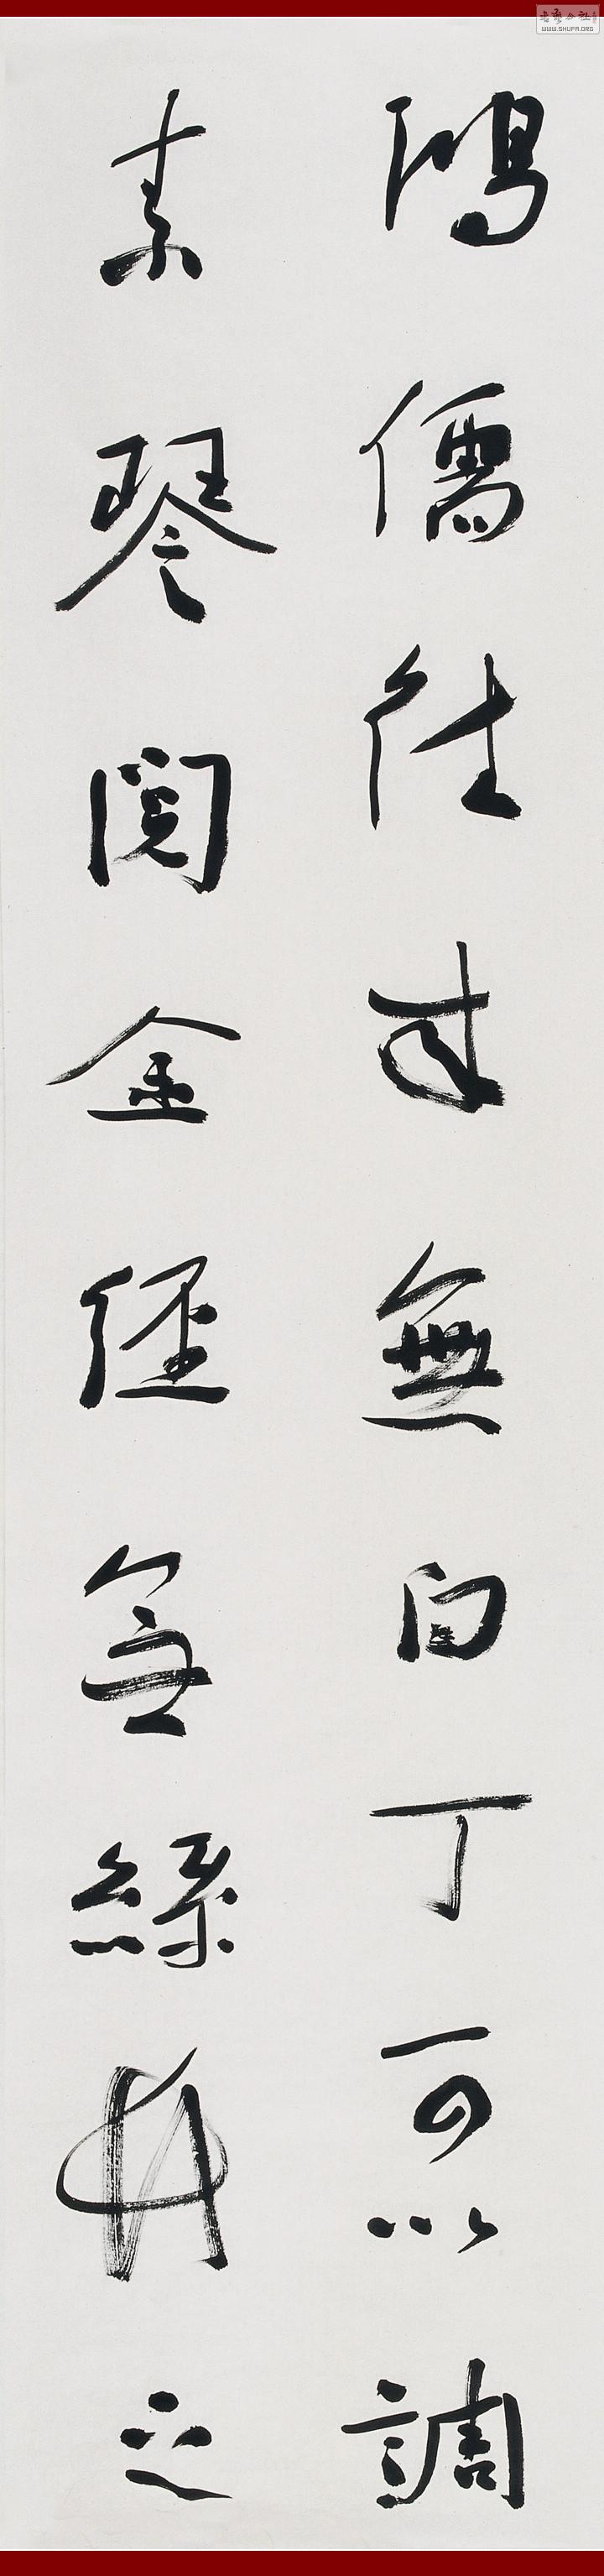 鴻儒往來無白丁可以調
素琴閱金經無絲竹之
WWW.SHUFA.ORG